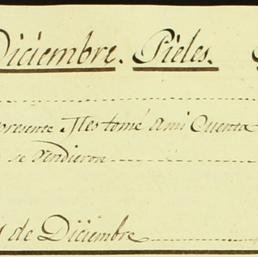 Diciembre. Pieles.
presente Mes tomé a mi Quenta
se vendieron
de Diciembre